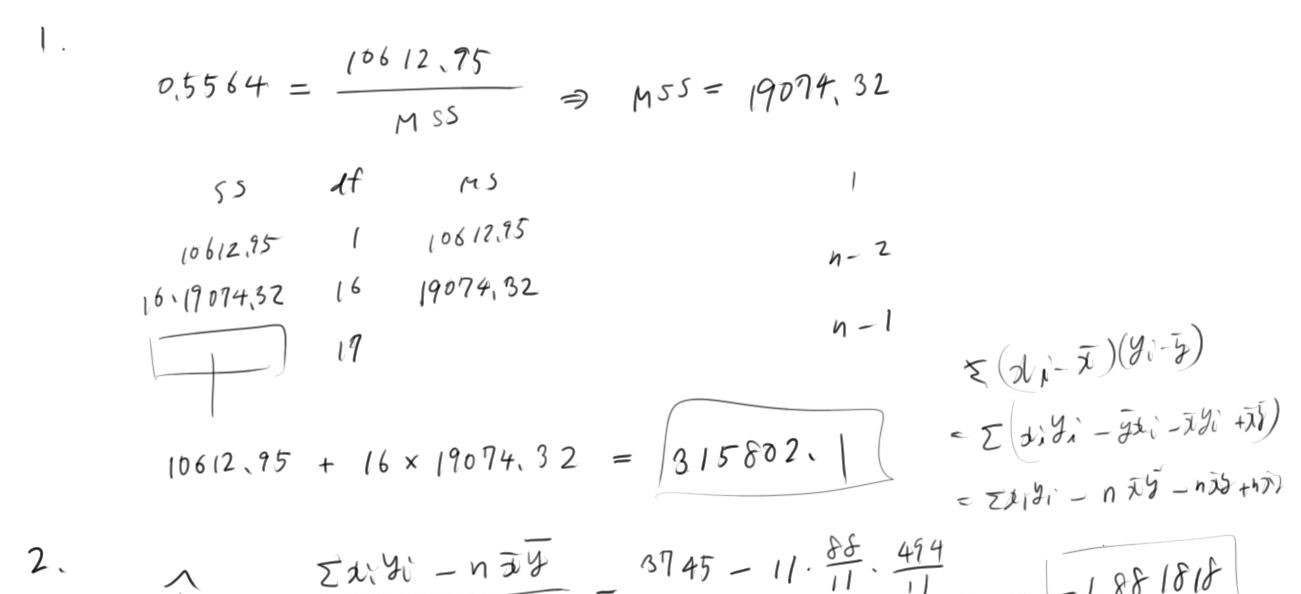 1.
0.5564 = 10612.95 / MSS ⇒ MSS = 19074.32
SS df MS
10612.95 1 10612.95 1
16·19074.32 16 19074.32 n-2
17 n-1
10612.95 + 16 × 19074.32 = 315802.1
Σ(xᵢ-x̄)(yᵢ-ȳ)
= Σ(xᵢyᵢ - ȳxᵢ - x̄yᵢ + x̄ȳ)
= Σxᵢyᵢ - n x̄ȳ - nx̄ȳ + nx̄
2.
Σxᵢyᵢ - n x̄ȳ = 3745 - 11 · 88/11 · 494/11
-1.881818